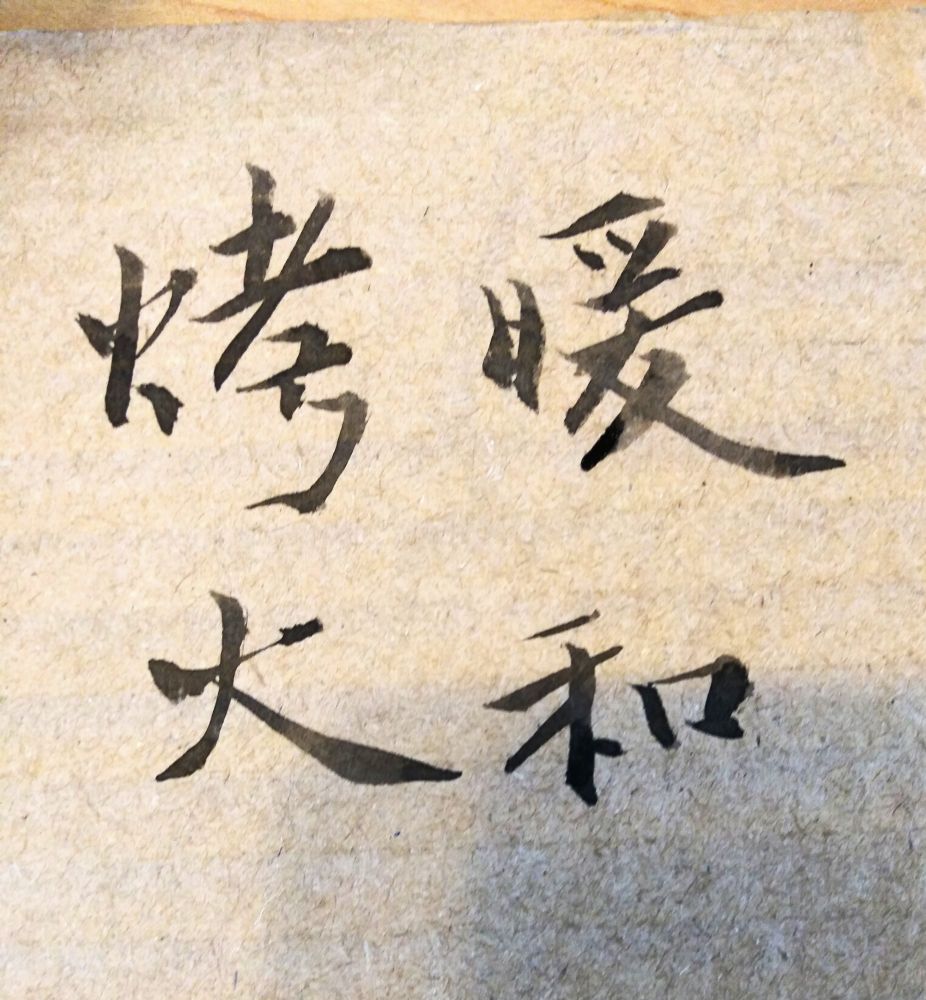 暖和
烤火